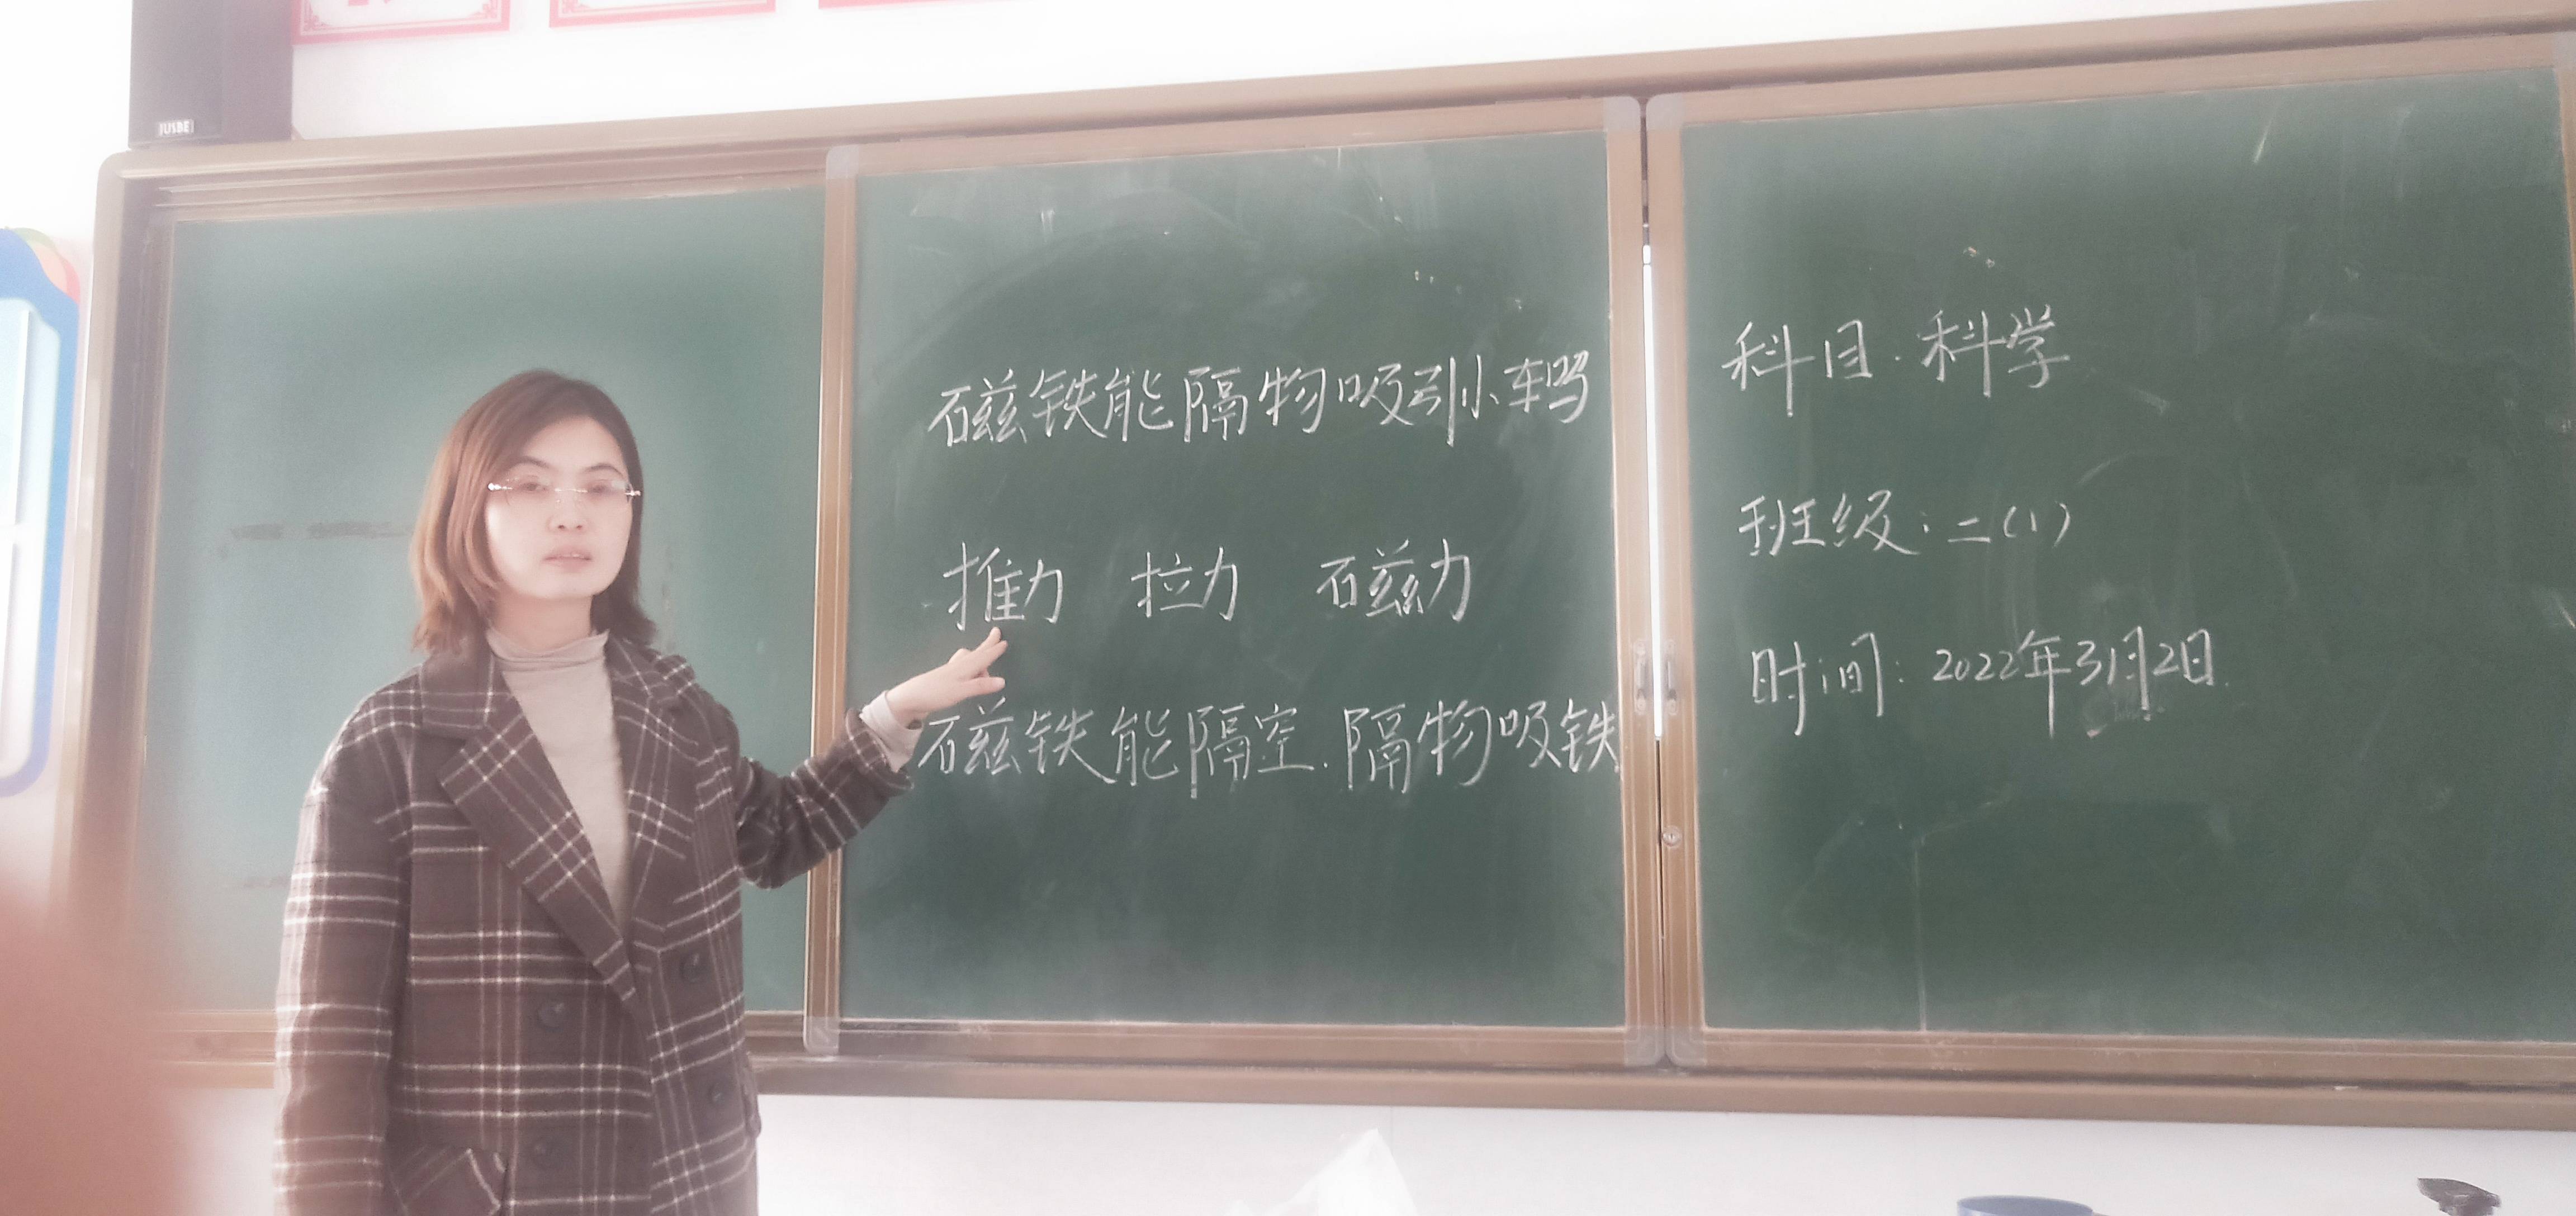 JUSBE
磁铁能隔物吸引小车吗
推力 拉力 磁力
磁铁能隔空.隔物吸铁
科目.科学
班级:二(1)
时间:2022年3月2日.